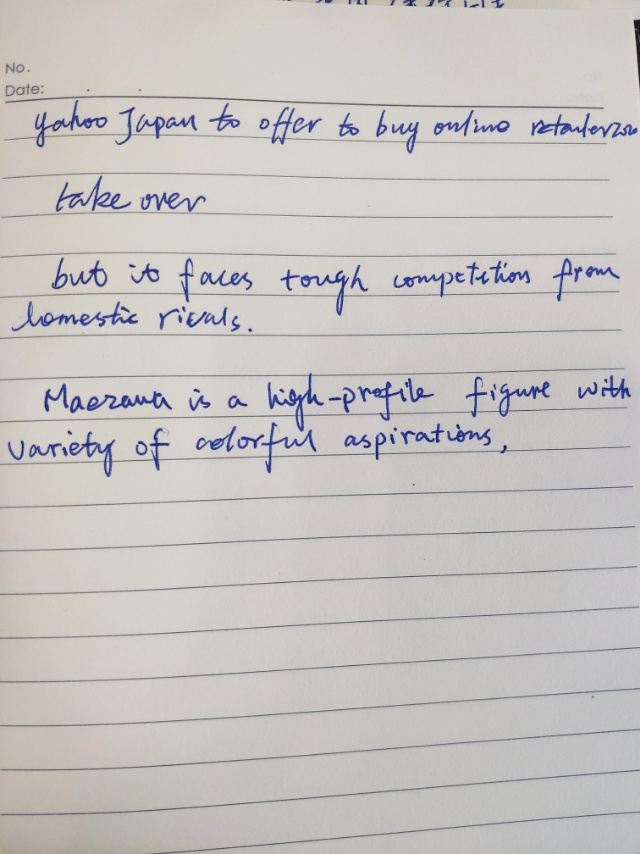 No.
Date:
Yahoo Japan to offer to buy online retailer
take over
but it faces tough competition from
domestic rivals.
Maezawa is a high-profile figure with
variety of colorful aspirations,